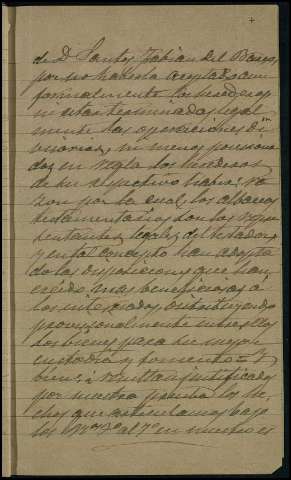 de Dn Santos Fabian del Barco,
por no haberla aceptado aun
formalmente los herederos
ni estar terminadas legal
mente las operaciones di
visorias, ni menos posesiona
dos en regla los herederos
de su respectivo haber: ra
zon por la cual, los albaceas
testamentarios son los repre
sentantes legales del testador
y en tal concepto han adopta
do las disposiciones que han
creido mas beneficiosas a
los interesados, distribuyendo
provisionalmente entre ellos
los bienes para su mejor
custodia y fomento = Y
bien: i resultan justificados
por nuestra prueba los he
chos que articulamos bajo
los Nos 3o al 7o en nuestro es